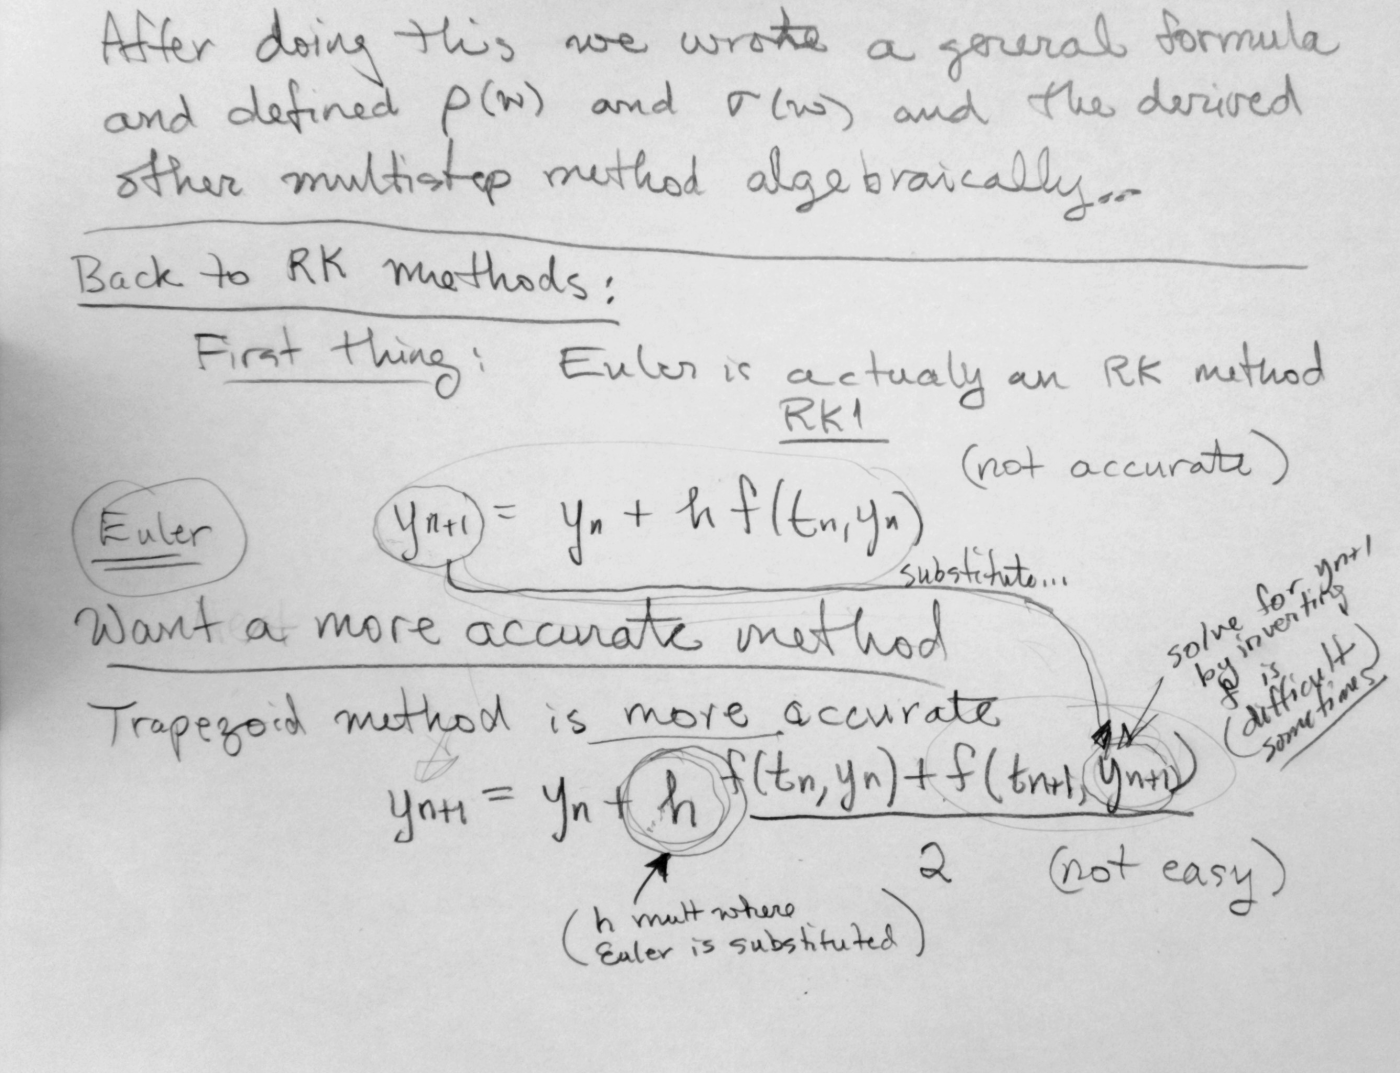 After doing this we wrote a general formula
and defined ρ(w) and σ(w) and the derived
other multistep method algebraically...
Back to RK methods:
First thing: Euler is actualy an RK method
RK1
(not accurate)
Euler yn+1 = yn + h f(tn, yn)
substitute...
solve for yn+1
by inverting
f is
(difficult)
sometimes
Want a more accurate method
Trapezoid method is more accurate
yn+1 = yn + h f(tn, yn) + f(tn+1, yn+1)
2 (not easy)
(h mult where
Euler is substituted)